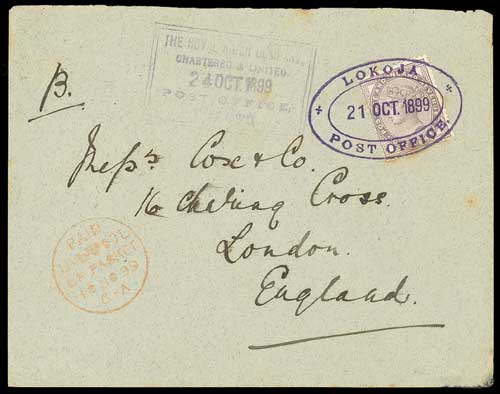 THE ROYAL NIGER COMPANY
CHARTERED & LIMITED.
24 OCT. 1899
POST OFFICE,
LOKOJA
21 OCT. 1899
POST OFFICE.
B.
Messrs Cox & Co.
16 Charing Cross.
London.
England.
PAID
LIVERPOOL
BR PACKET
NO 99